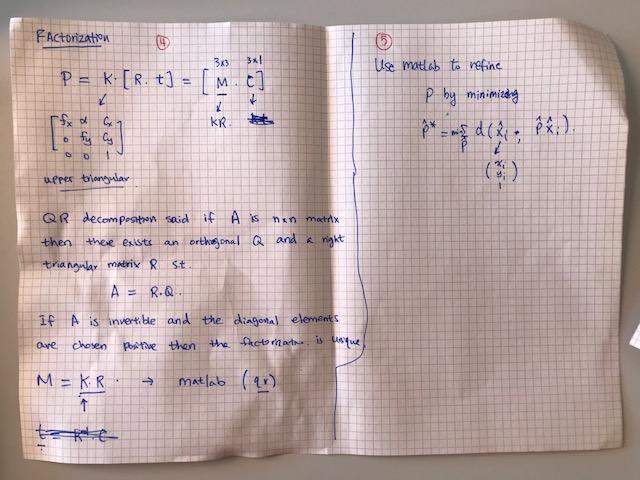 FActorization
④
3x3 3x1
P = K·[R. t] = [M . C]
KR.
[fx α Cx
0 fy Cy
0 0 1]
upper triangular
QR decomposition said if A is nxn matrix
then there exists an orthogonal Q and a right
triangular matrix R s.t.
A = R.Q.
If A is invertible and the diagonal elements
are chosen positive then the factorization is unique
M = K.R. → matlab (qr)
t = C
⑤
Use matlab to refine
P by minimizing
P̂* = min d(x̂i, P̂X̂i).
P̂
(xi
yi
1)